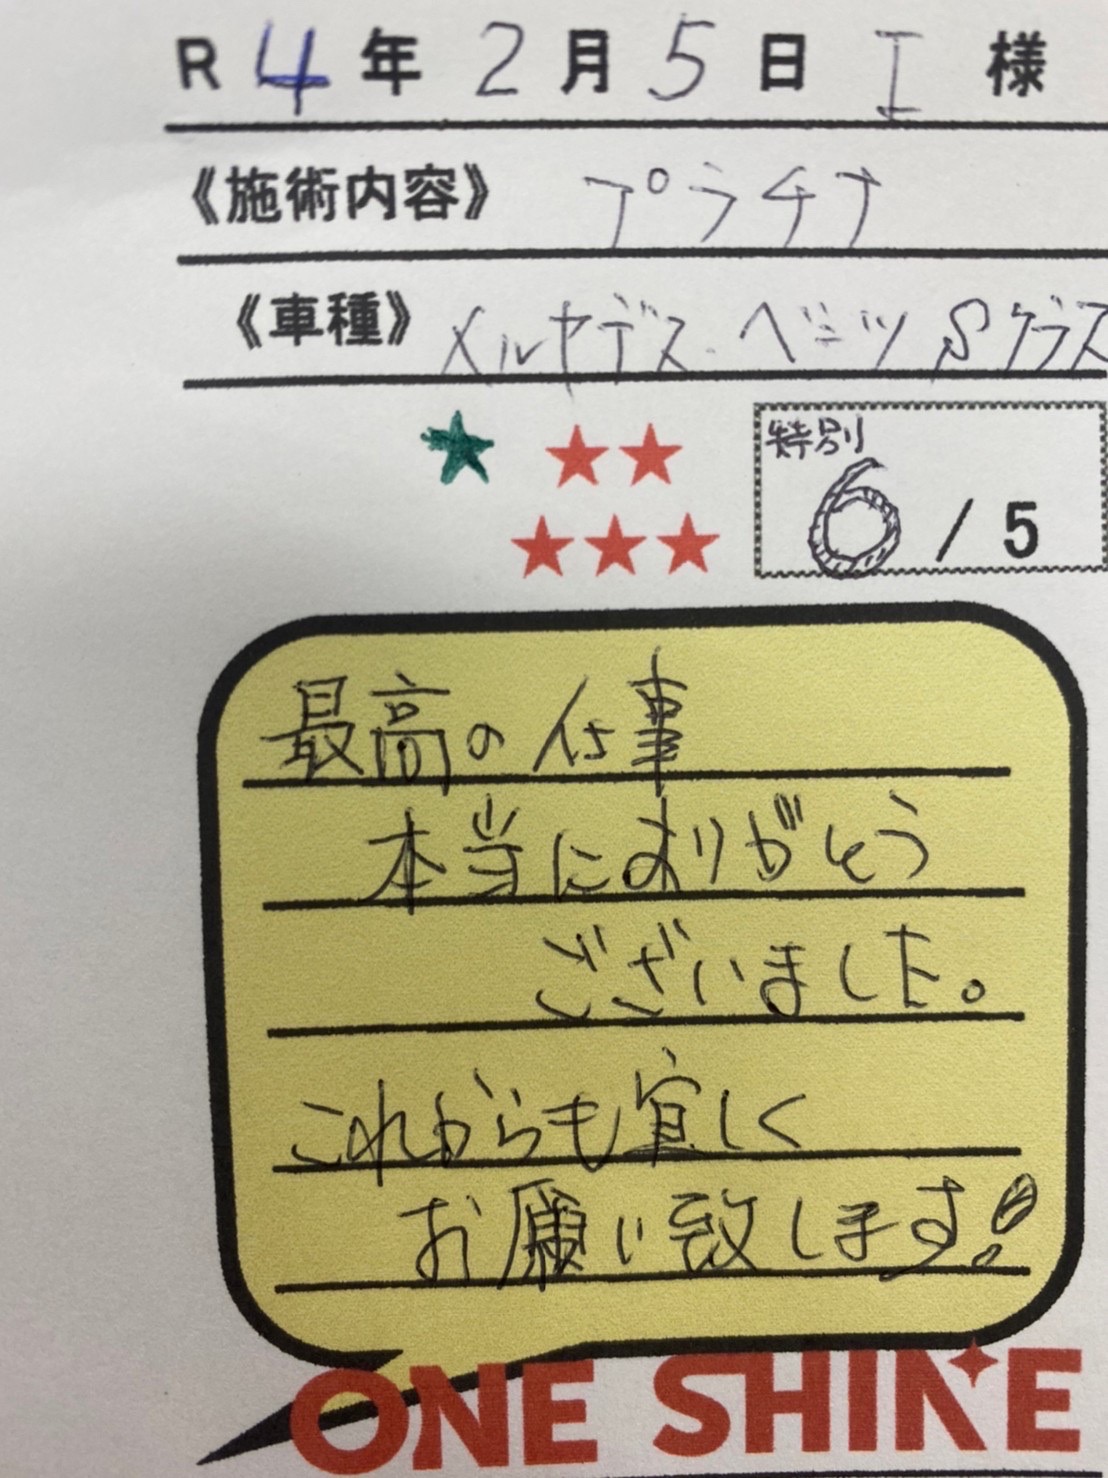 R4年2月5日 I様
《施術内容》 プラチナ
《車種》 メルセデス・ベンツ Sクラス
特別
6/5
最高の仕事
本当にありがとう
ございました。
これからも宜しく
お願い致します!
ONE SHINE